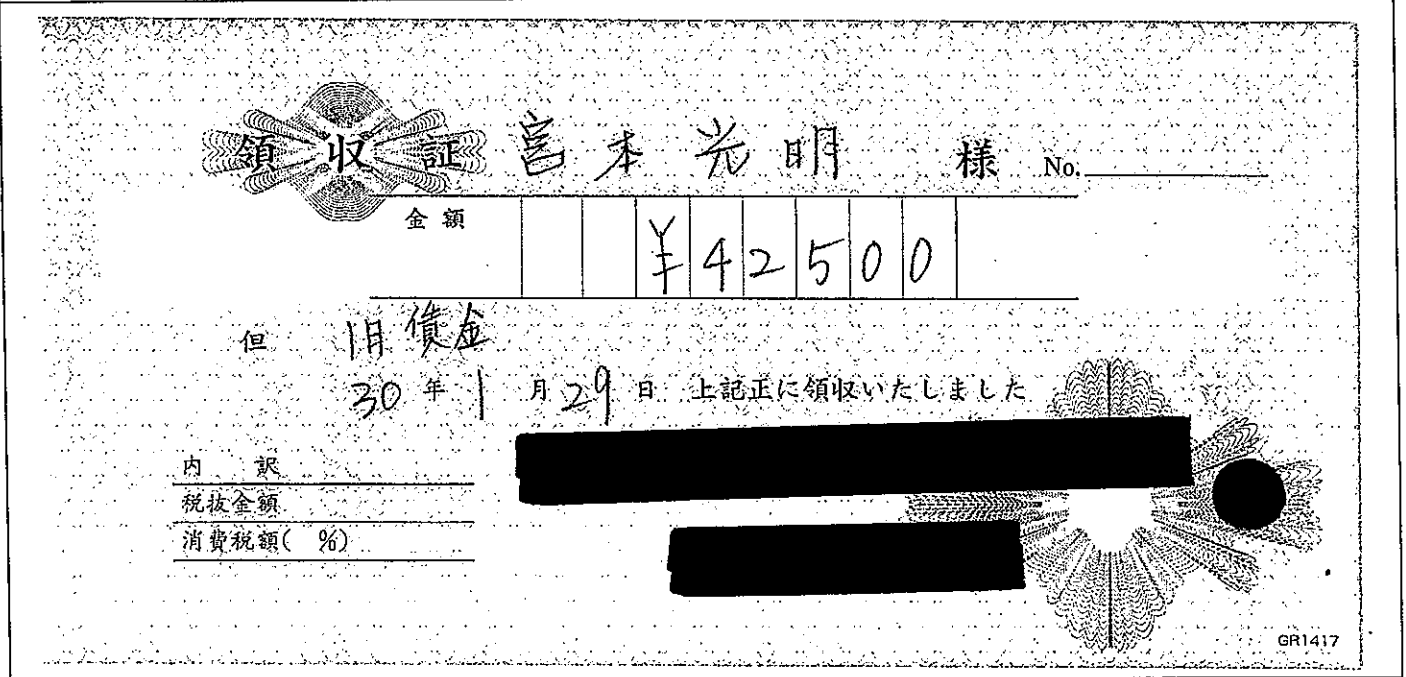 領収証 宮本光明 様 No.
金額 ¥42500
但 1月賃金
30年1月29日 上記正に領収いたしました
内 訳
税抜金額
消費税額( %)
GR1417